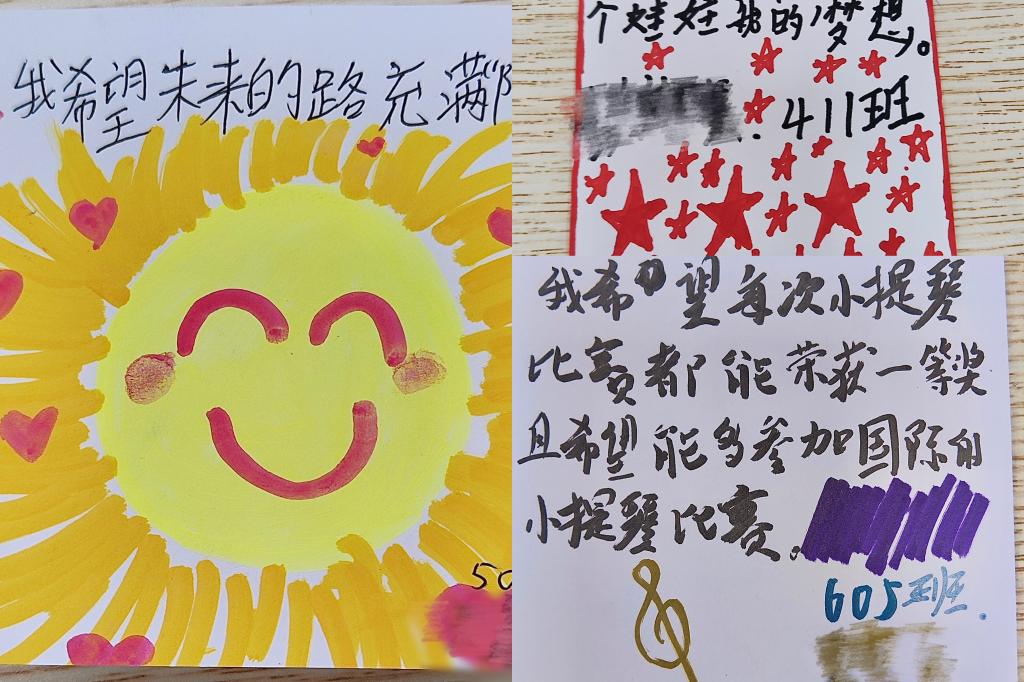 我希望未来的路充满“阝
50
个娃娃我的梦想。
411班
我希望每次小提琴
比赛都能荣获一等奖
且希望能多参加国际的
小提琴比赛。
605班.